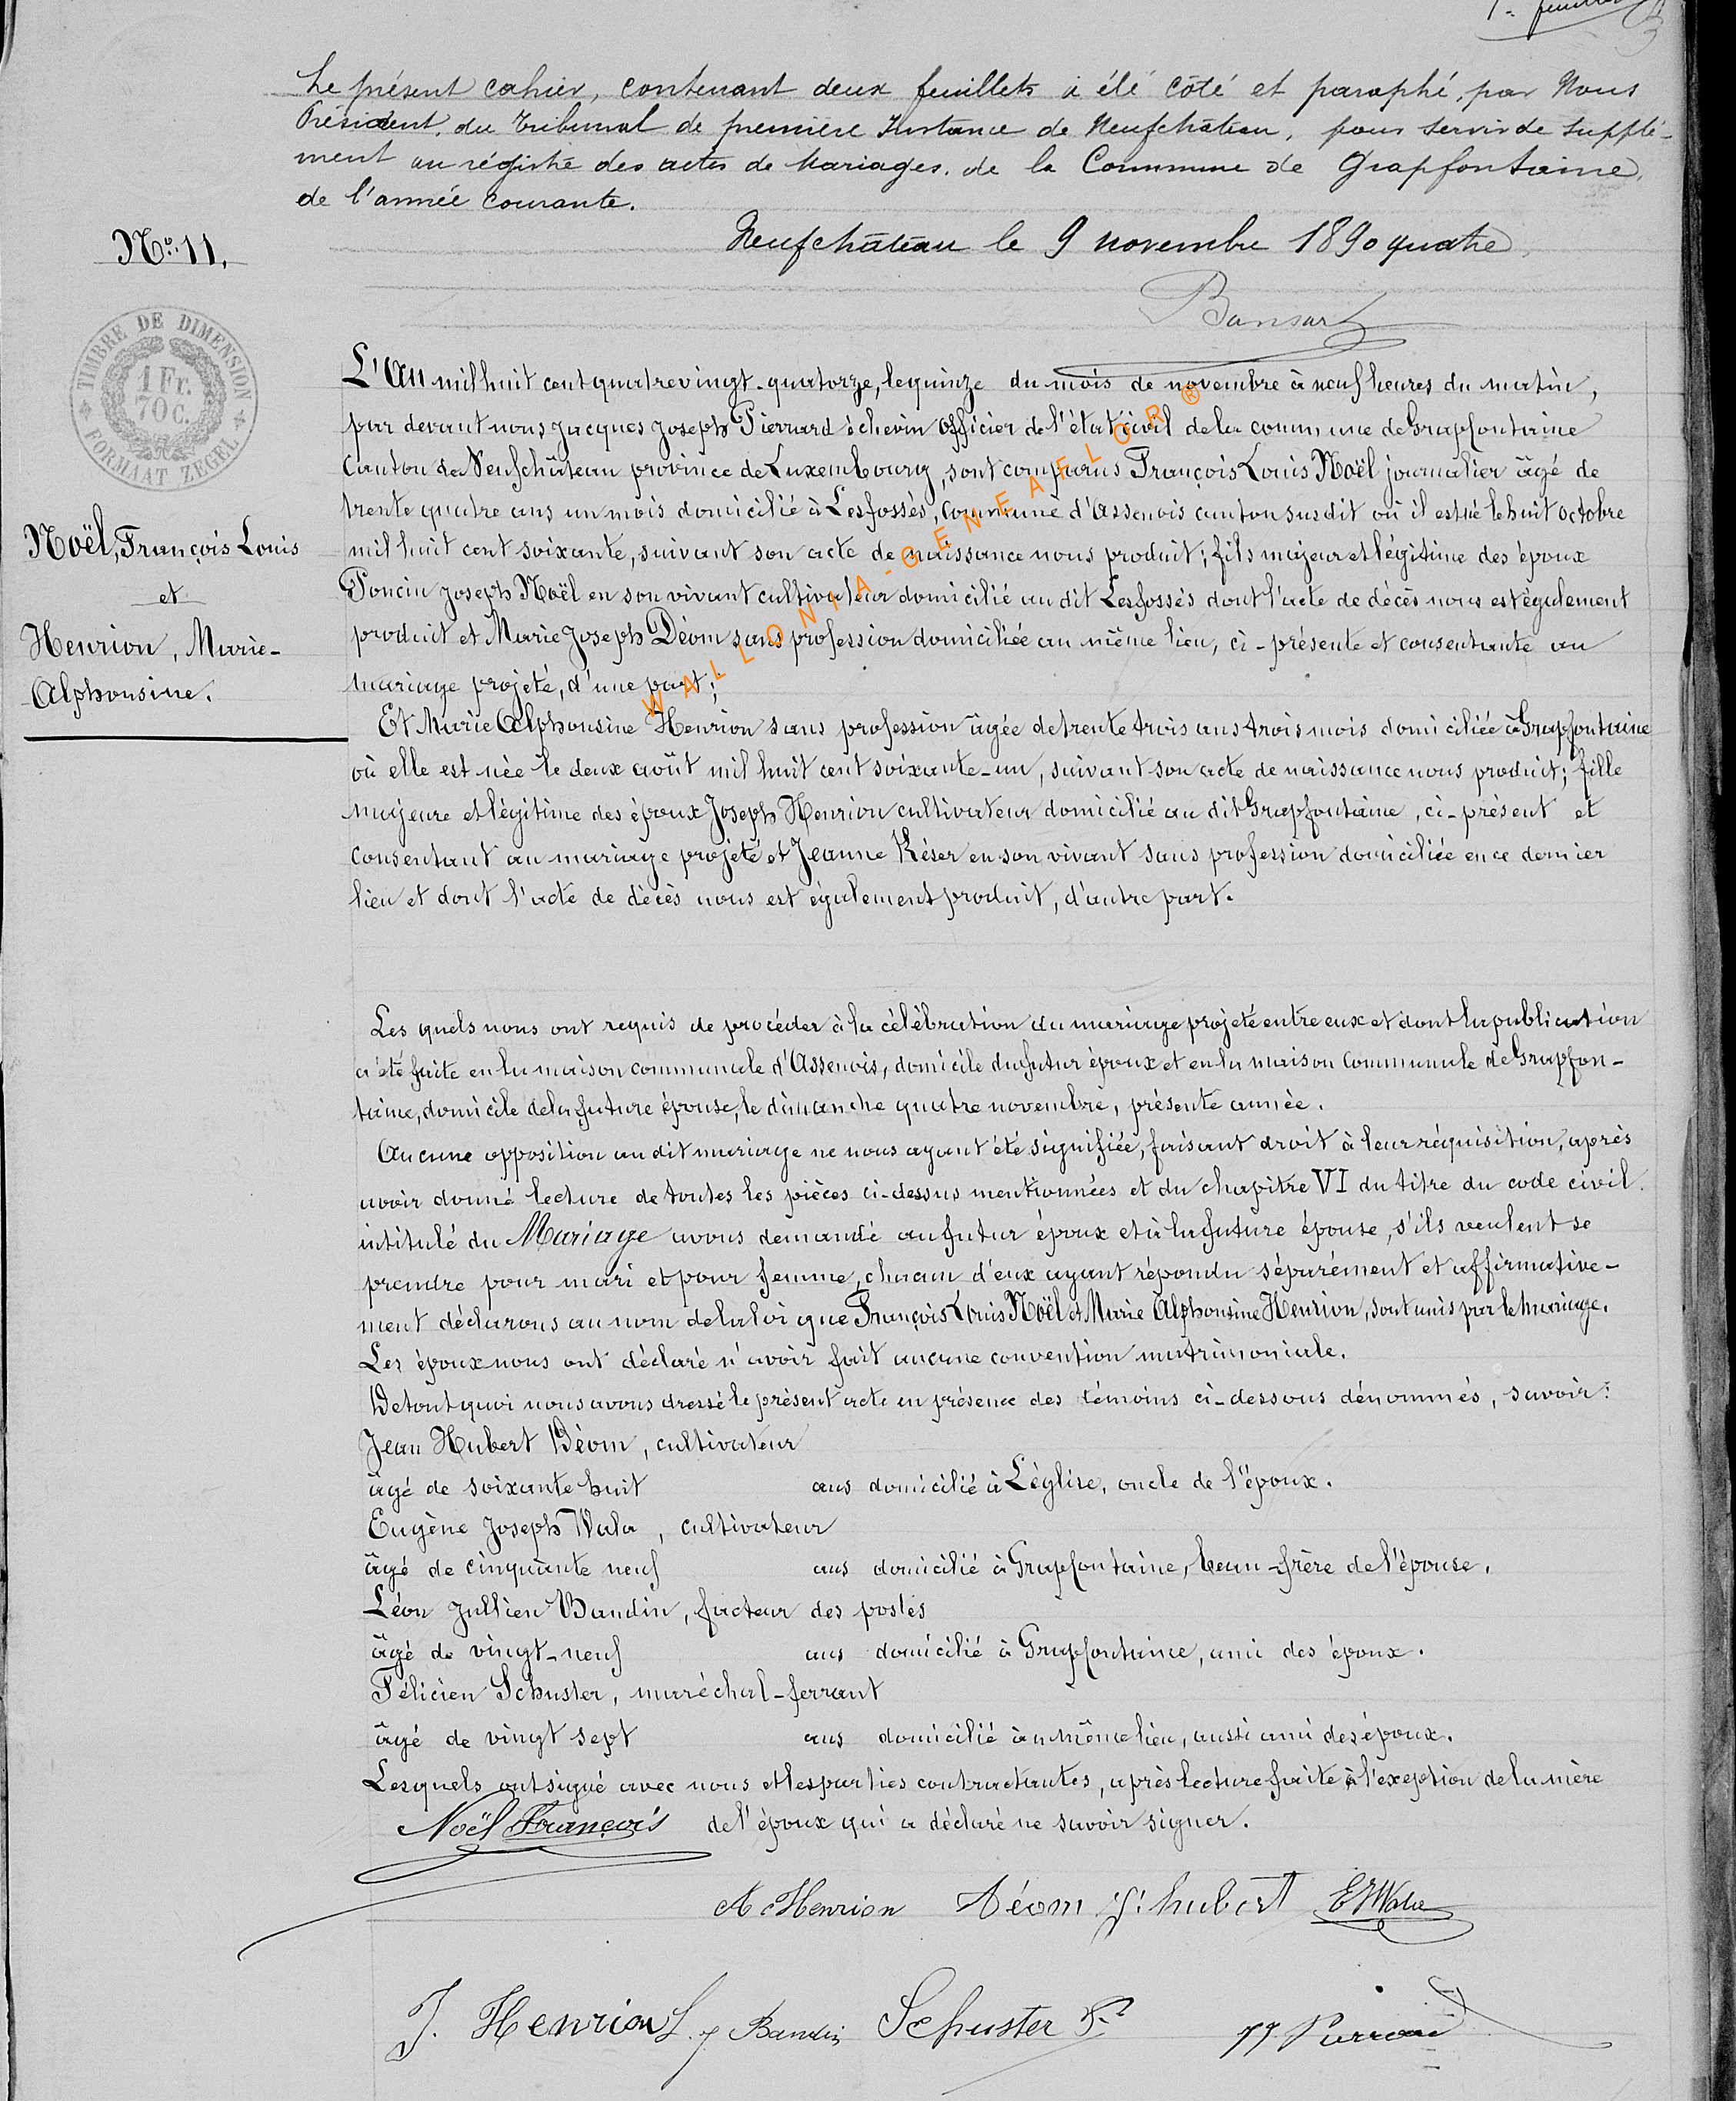 1er feuillet
Le présent cahier, contenant deux feuillets a été côté et paraphé, par Nous
Président, du Tribunal de première Instance de Neufchâteau, pour servir de supplé-
ment au régistre des actes de Mariages, de la Commune de Grapfontaine,
de l'année courante.
Neufchâteau le 9 novembre 1890 quatre
N° 11.
TIMBRE DE DIMENSION
1 Fr.
70 C.
FORMAAT ZEGEL
Noël, François Louis
et
Henrion, Marie-
Alphonsine.
L'An mil huit cent quatre vingt-quatorze, le quinze du mois de novembre à neuf heures du matin,
par devant nous Jacques Joseph Pierrard échevin officier de l'état civil de la commune de Grapfontaine
Canton de Neufchâteau province de Luxembourg, sont comparus François Louis Noël journalier âgé de
trente quatre ans un mois domicilié à Les fossés, commune d'Assenois canton susdit où il est né le huit octobre
mil huit cent soixante, suivant son acte de naissance nous produit; fils majeur et légitime des époux
Poncin Joseph Noël en son vivant cultivateur domicilié au dit Les fossés dont l'acte de décès nous est également
produit et Marie Joseph Déom sans profession domiciliée au même lieu, ci-présente et consentante au
mariage projeté, d'une part;
Et Marie Alphonsine Henrion sans profession âgée de trente trois ans trois mois domiciliée à Grapfontaine
où elle est née le deux août mil huit cent soixante-un, suivant son acte de naissance nous produit; fille
majeure et légitime des époux Joseph Henrion cultivateur domicilié au dit Grapfontaine, ci-présent et
consentant au mariage projeté et Jeanne Réser en son vivant sans profession domiciliée en ce dernier
lieu et dont l'acte de décès nous est également produit, d'autre part.
WALLONIA-GENEAFLOR ®
Les quels nous ont requis de procéder à la célébration du mariage projeté entre eux et dont la publication
a été faite en la maison communale d'Assenois, domicile du futur époux et en la maison communale de Grapfon-
taine, domicile de la future épouse, le dimanche quatre novembre, présente année.
Aucune opposition au dit mariage ne nous ayant été signifiée, faisant droit à leur réquisition, après
avoir donné lecture de toutes les pièces ci-dessus mentionnées et du chapitre VI du titre du code civil
intitulé du Mariage avons demandé au futur époux et à la future épouse, s'ils veulent se
prendre pour mari et pour femme, chacun d'eux ayant répondu séparément et affirmative-
ment déclarons au nom de la loi que François Louis Noël et Marie Alphonsine Henrion, sont unis par le mariage.
Les époux nous ont déclaré n'avoir fait aucune convention matrimoniale.
De tout quoi nous avons dressé le présent acte en présence des témoins ci-dessous dénommés, savoir:
Jean Hubert Déom, cultivateur
âgé de soixante huit ans domicilié à Léglise, oncle de l'époux.
Eugène Joseph Wala, cultivateur
âgé de cinquante neuf ans domicilié à Grapfontaine, beau-frère de l'épouse.
Léon Jullien Baudin, facteur des postes
âgé de vingt-neuf ans domicilié à Grapfontaine, ami des époux.
Félicien Schuster, maréchal-ferrant
âgé de vingt sept ans domicilié au même lieu, aussi ami des époux.
Lesquels ont signé avec nous et les parties contractantes, après lecture faite à l'exeption de la mère
de l'époux qui a déclaré ne savoir signer.
Noël François
A Henrion Déom J. hubert EJ Wala
J. Henrion L. J Baudin Schuster F. JJ. Pierrard